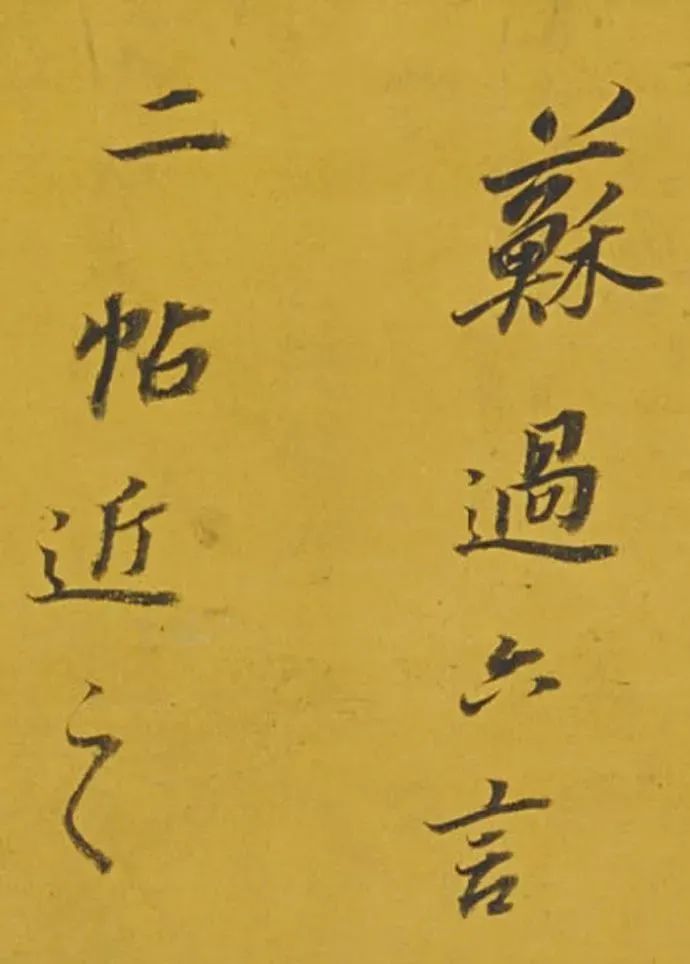 蘇過六言
二帖近之